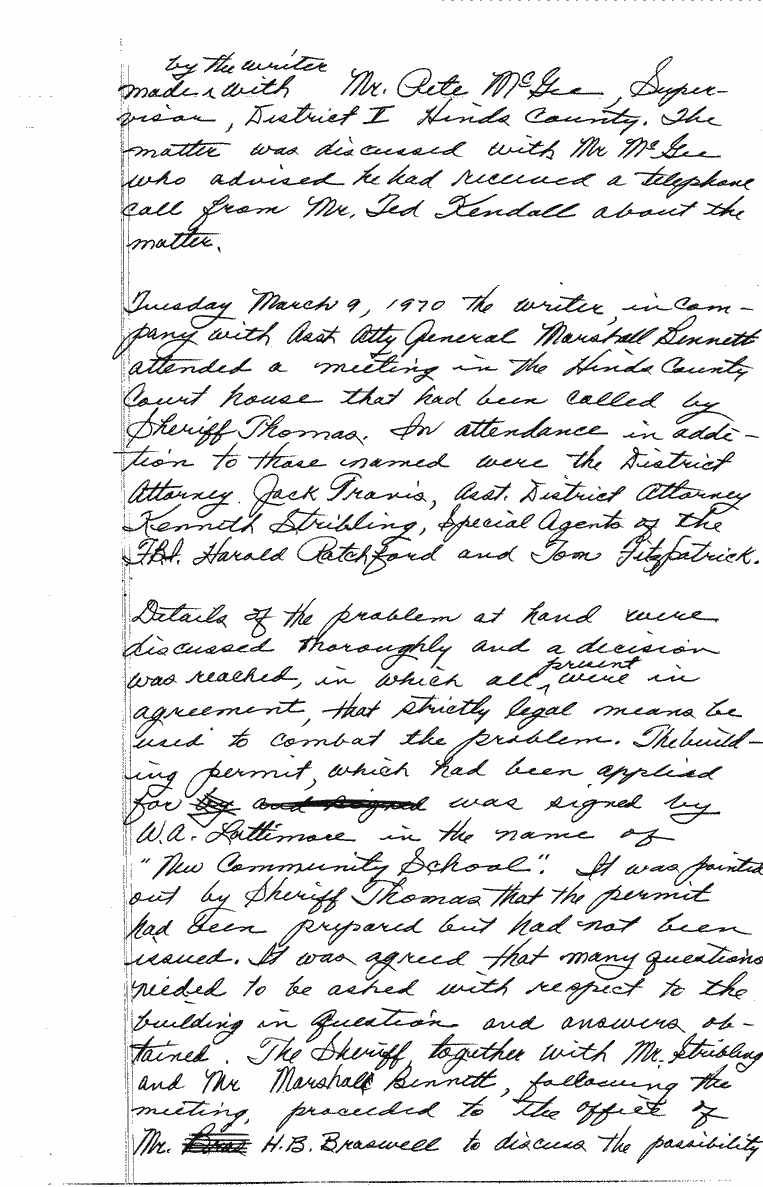 by the writer
made ‸ with Mr. Pete McGee, Super-
visor, District I Hinds County. The
matter was discussed with Mr McGee
who advised he had received a telephone
call from Mr. Ted Kendall about the
matter.
Tuesday March 9, 1970 the writer, in com-
pany with Asst Atty General Marshall Bennett
attended a meeting in the Hinds County
Court house that had been called by
Sheriff Thomas. In attendance in addi-
tion to those named were the District
Attorney Jack Travis, Asst. District Attorney
Kenneth Stribling, Special Agents of the
FBI. Harold Ratchford and Tom Fitzpatrick.
Details of the problem at hand were
discussed thoroughly and a decision
present
was reached, in which all ‸ were in
agreement, that strictly legal means be
used to combat the problem. The build-
ing permit, which had been applied
for by and signed was signed by
W.A. Lattimore in the name of
"New Community School". It was pointed
out by Sheriff Thomas that the permit
had been prepared but had not been
issued. It was agreed that many questions
needed to be asked with respect to the
building in question and answers ob-
tained. The Sheriff, together with Mr. Stribling
and Mr Marshall Bennett, following the
meeting, proceeded to the office of
Mr. Bras H.B. Braswell to discuss the possibility